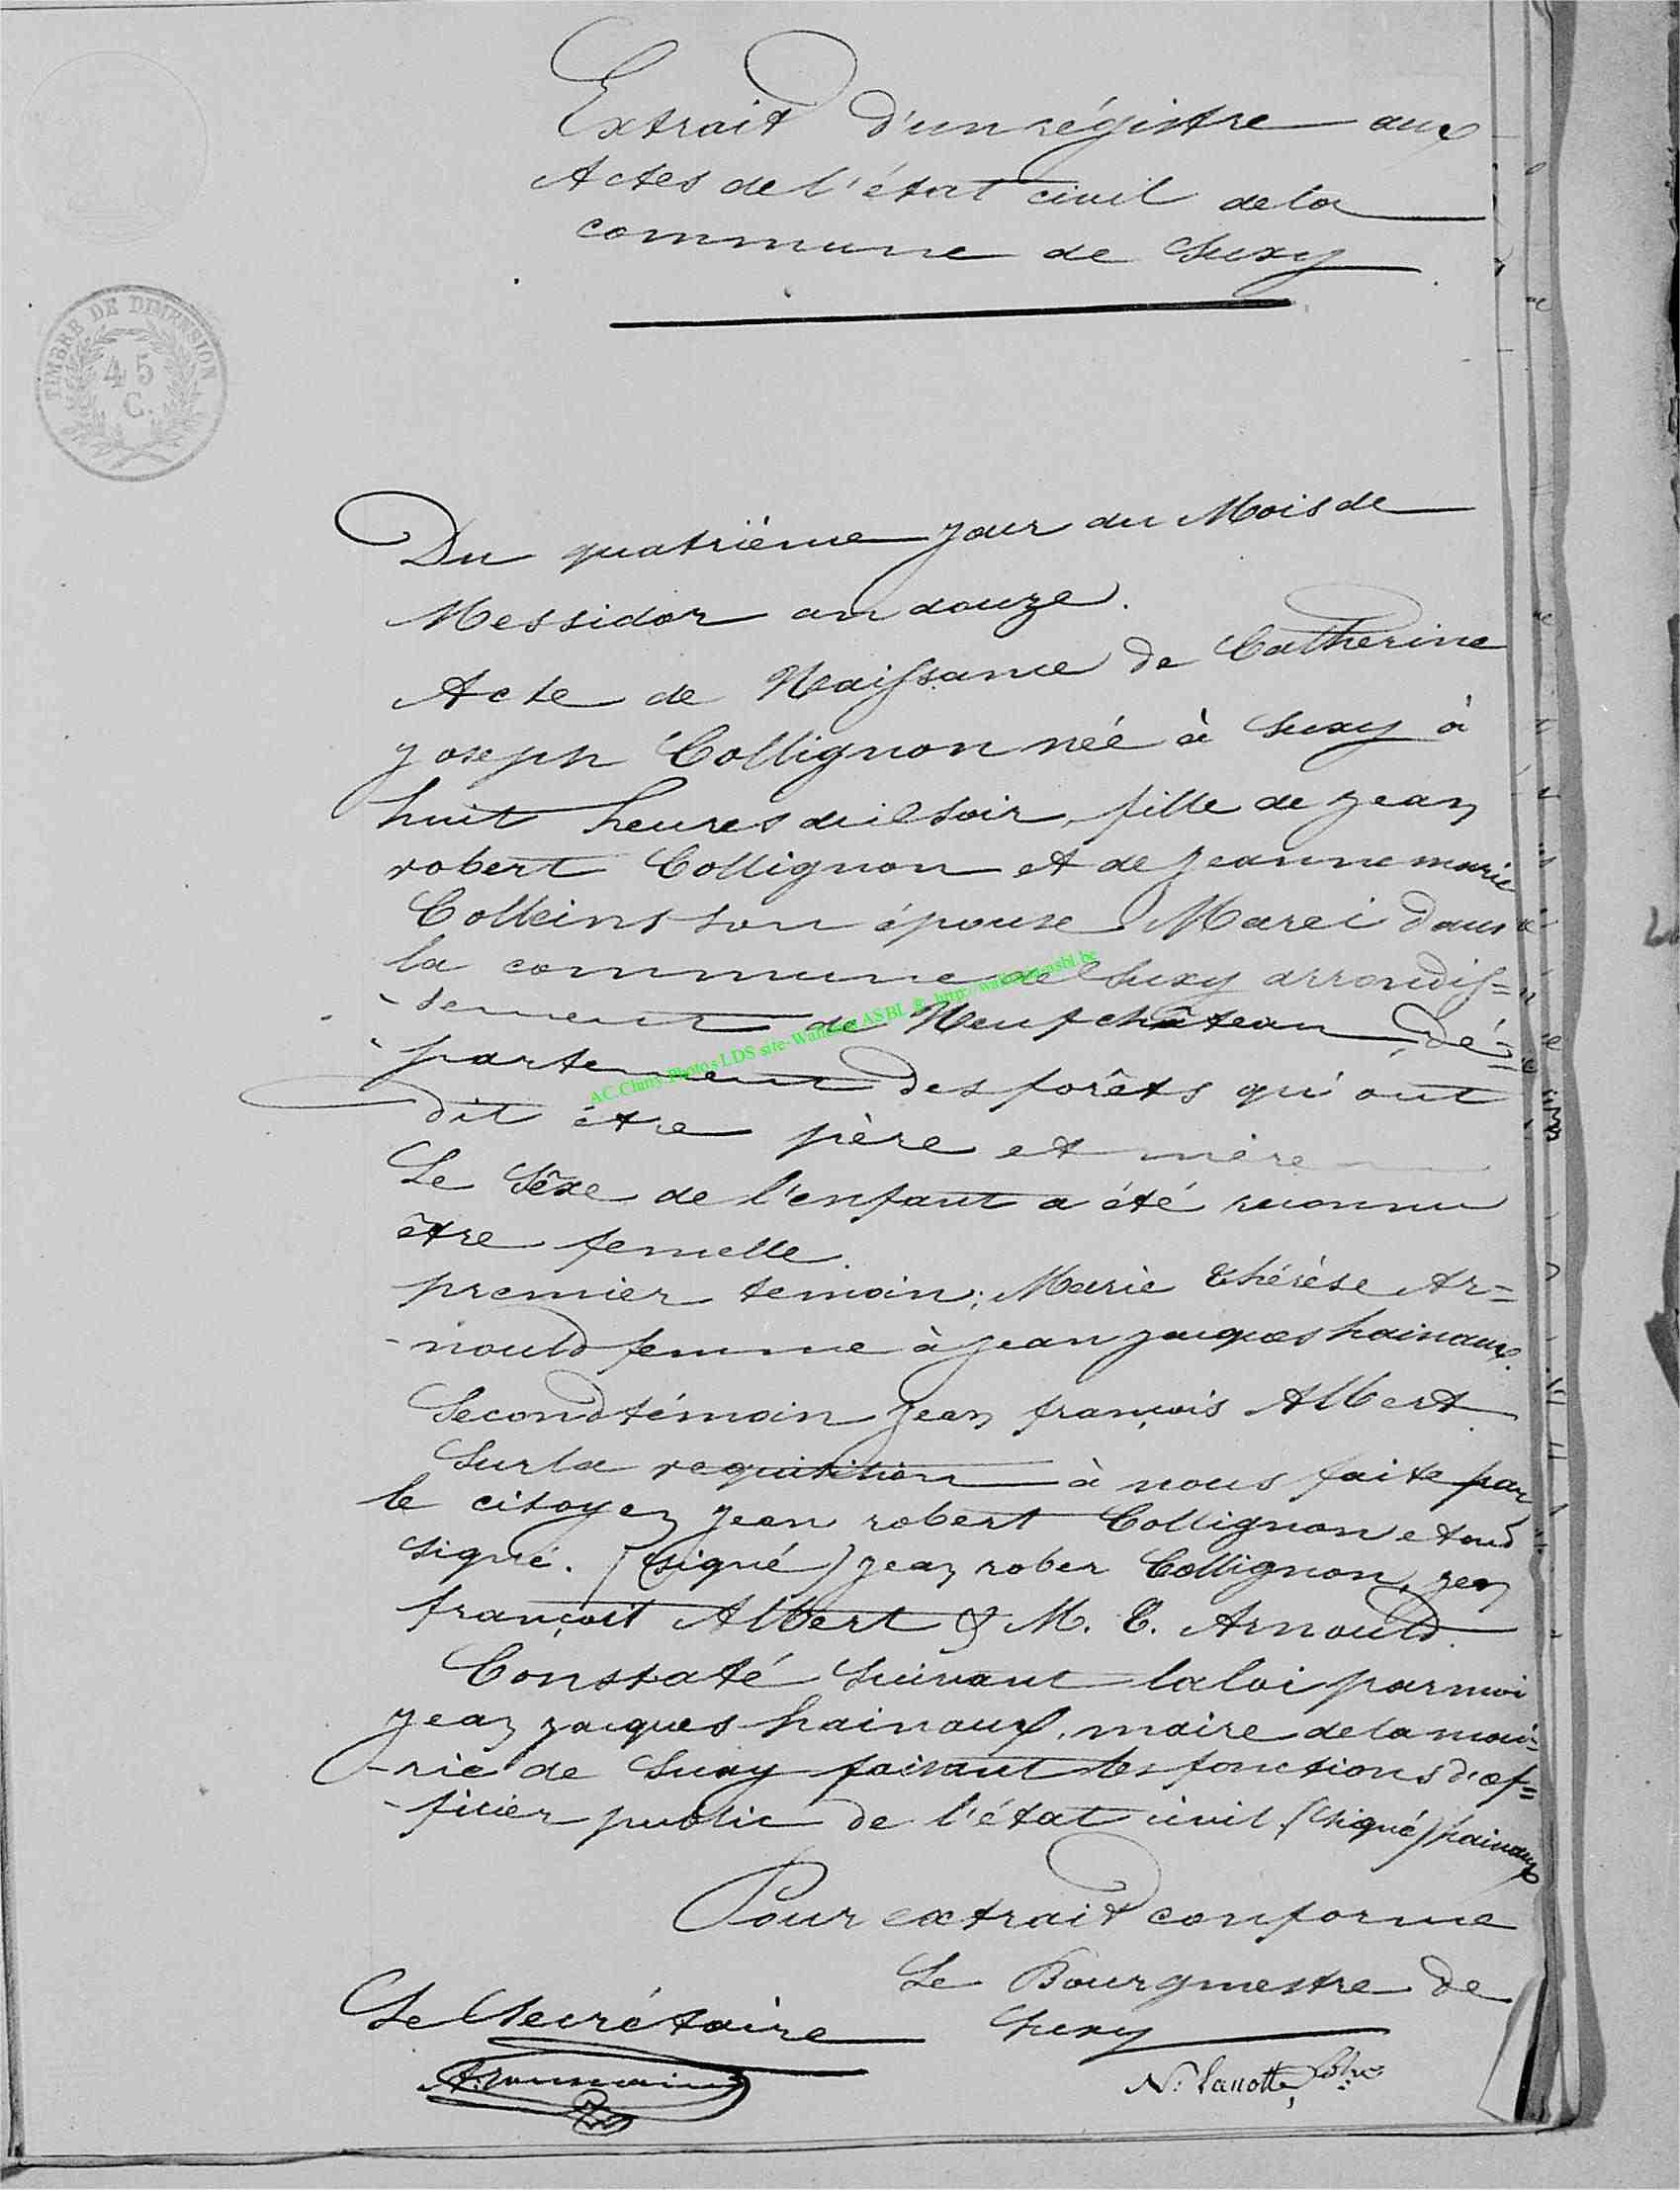 Extrait d'un régistre aux
Actes de l'état civil de la
commune de Suxy
TIMBRE DE DIMENSION
45
C.
Du quatrième jour du Mois de
Messidor an douze.
Acte de Naissance de Catherine
Joseph Collignon née à Suxy à
huit heures du soir, fille de jean
robert Collignon et de jeanne marie
Colleins son épouse Marei dans
la commune de Suxy arrondis=
-sement de Neufchâteau, dé=
-partement des forêts qui ont
dit être père et mère
Le Sêxe de l'enfant a été reconnu
être femelle.
premier temoin; Marie thérèse Ar=
-nould femme à jean jacques hainaux.
Second témoin jean françois Albert.
Sur la requisition à nous faite par
le citoyen jean robert Collignon et ont
signé. (signé) jean rober Collignon, jean
françois Albert & M. T. Arnould.
Constaté Suivant la loi par moi
jean jacques hainaux, maire de la mai=
-rie de Suxy faisant les fonctions d'of=
-ficier public de l'état civil (signé) hainaux
Pour extrait conforme
Le Bourgmestre de
Suxy
Le Secrétaire
N. Lanotte
AC.Chiny.Photos LDS site-Wallonia ASBL & http://wallonia-asbl.be